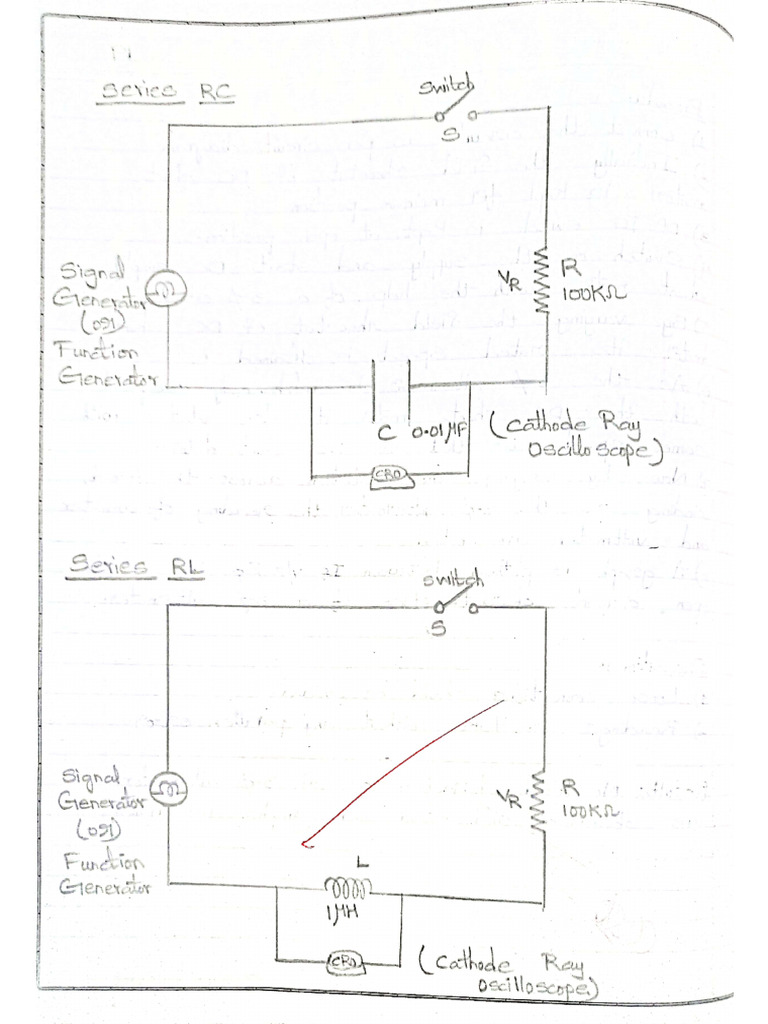 Series RC
Switch
S
Signal
Generator
(or)
Function
Generator
VR
R
100KΩ
C 0.01μF
(Cathode Ray
Oscilloscope)
CRO
Series RL
Switch
S
Signal
Generator
(or)
Function
Generator
VR
R
100KΩ
L
1μH
CRO
(Cathode Ray
Oscilloscope)